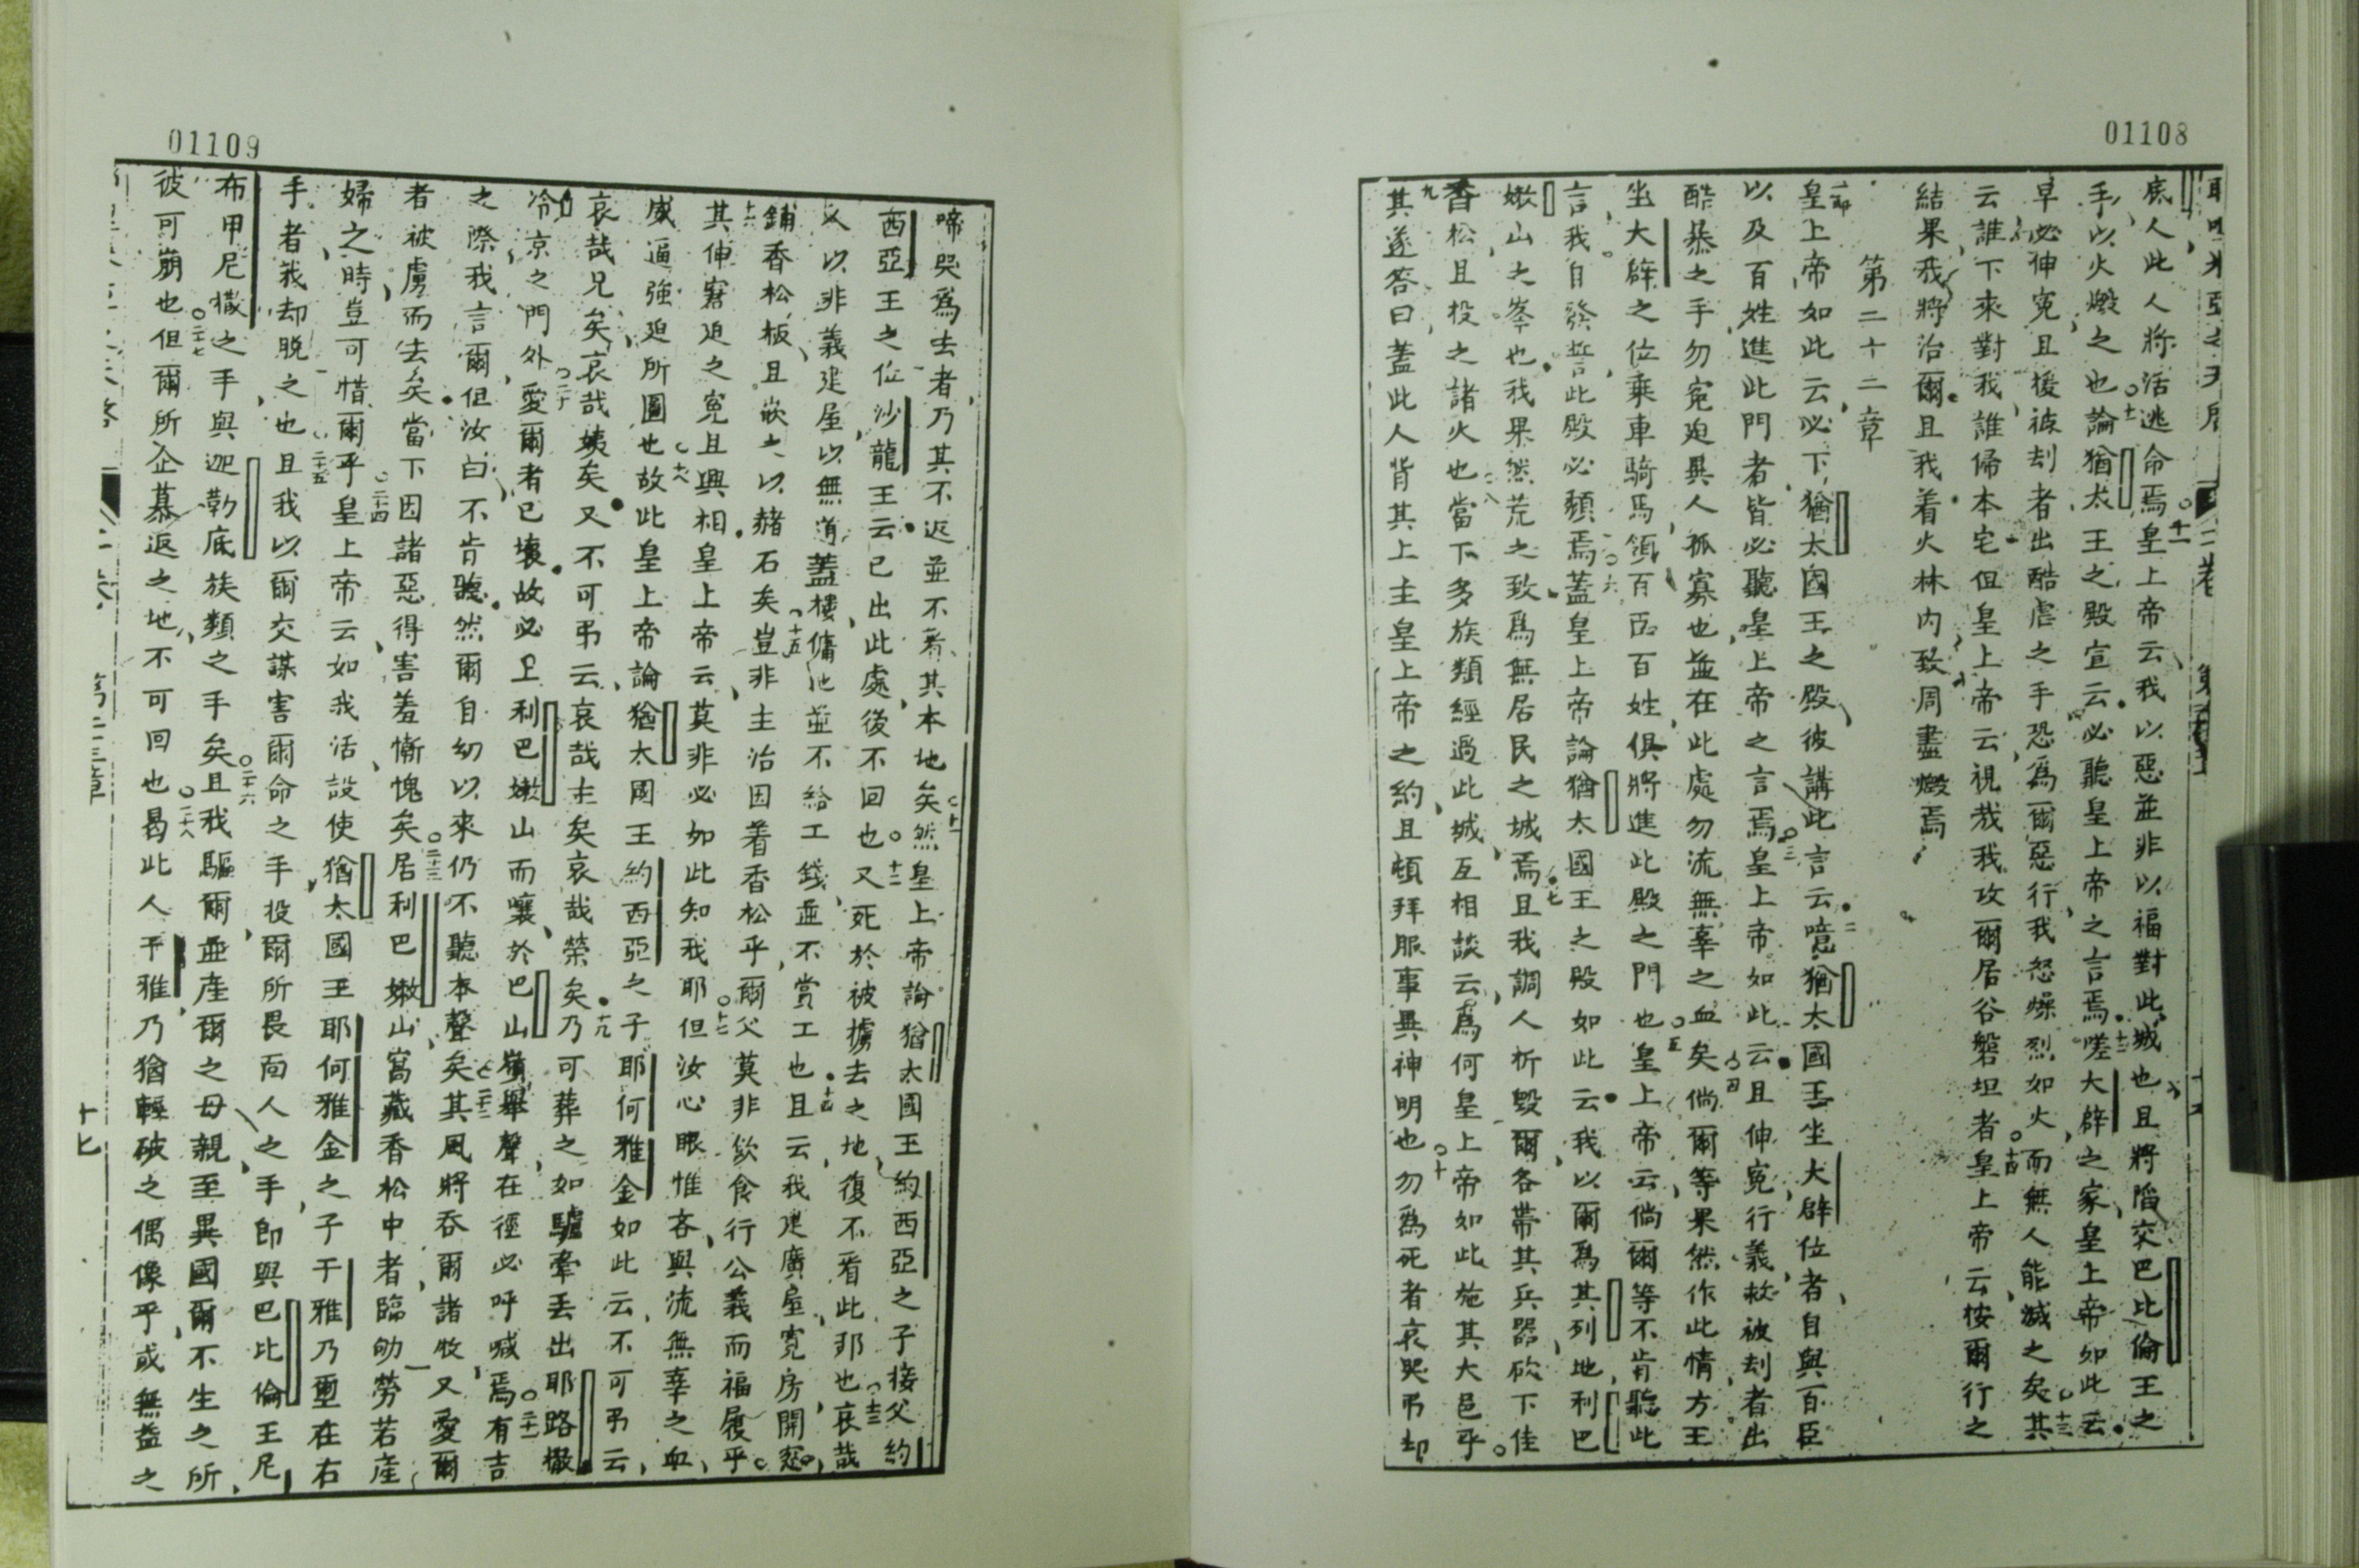 01108
底人此人將活逃命焉皇上帝云我以惡並非以福對此城也且將陷交巴比倫王之
手以火燬之也論猶太王之殿宣云必聽皇上帝之言焉嗟大辟之家皇上帝如此云
早必伸寃且援被刦者出酷虐之手恐爲爾惡行我怒燥烈如火而無人能滅之矣其
云誰下來對我誰歸本宅但皇上帝云視哉我攻爾居谷磐坦者皇上帝云按爾行之
結果我將治爾且我着火林內致周盡燬焉
第二十二章
皇上帝如此云必下猶太國王之殿彼講此言云噫猶太國王坐大辟位者自與百臣
以及百姓進此門者皆必聽皇上帝之言焉皇上帝如此云且伸寃行義救被刦者出
酷暴之手勿寃迫異人孤寡也並在此處勿流無辜之血矣倘爾等果然作此情方王
坐大辟之位乘車騎馬領百臣百姓俱將進此殿之門也皇上帝云倘爾等不肯聽此
言我自發誓此殿必頹焉蓋皇上帝論猶太國王之殿如此云我以爾爲其列地利巴
嫩山之峯也我果然荒之致爲無居民之城焉且我調人析毀爾各帶其兵器砍下佳
香松且投之諸火也當下多族類經過此城互相談云爲何皇上帝如此施其大邑乎
其遂答曰蓋此人背其上主皇上帝之約且頓拜服事異神明也勿爲死者哀哭弔却
01109
啼哭爲去者乃其不返並不看其本地矣然皇上帝論猶太國王約西亞之子接父約
西亞王之位沙龍王云已出此處後不回也又死於被擄去之地復不看此耶也哀哉
以非義建屋以無道蓋樓傭他並不給工錢並不賞工也且云我建廣屋寬房開窓
鋪香松板且嵌之以赭石矣豈非主治因着香松乎爾父莫非飲食行公義而福履乎
其伸窘迫之寃且興相皇上帝云莫非必如此知我耶但汝心眼惟吝與流無辜之血
威逼強迫所圖也故此皇上帝論猶太國王約西亞之子耶何雅金如此云不可弔云
哀哉兄矣哀哉姨矣又不可弔云哀哉主矣哀哉榮矣乃可葬之如驢牽丢出耶路撒
冷京之門外愛爾者已壞故必上利巴嫩山而嚷於巴山嶺舉聲在徑必呼喊焉有吉
之際我言爾但汝曰不肯聽然爾自幼以來仍不聽本聲矣其風將吞爾諸牧又愛爾
者被虜而去矣當下因諸惡得害羞慚愧矣居利巴嫩山窩藏香松中者臨劬勞若產
婦之時豈可惜爾乎皇上帝云如我活設使猶太國王耶何雅金之子干雅乃璽在右
手者我却脫之也且我以爾交謀害爾命之手投爾所畏面人之手即與巴比倫王尼
布甲尼撒之手與迦勒底族類之手矣且我驅爾並產爾之母親至異國爾不生之所
彼可崩也但爾所企慕返之地不可回也曷此人干雅乃猶輕破之偶像乎或無益之
十七